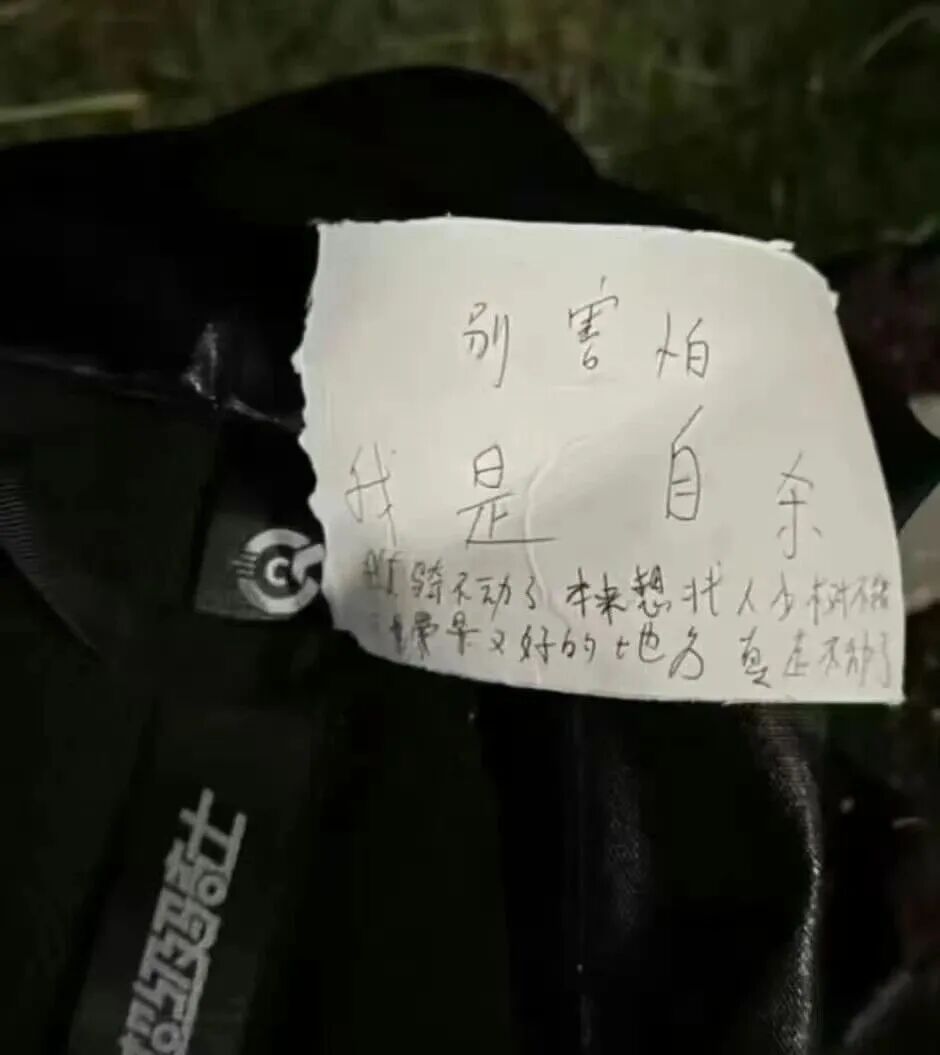 别害怕
我是自杀
骑不动了 本来想找人少树不错
风景又好的地方 真走不动了
骑士